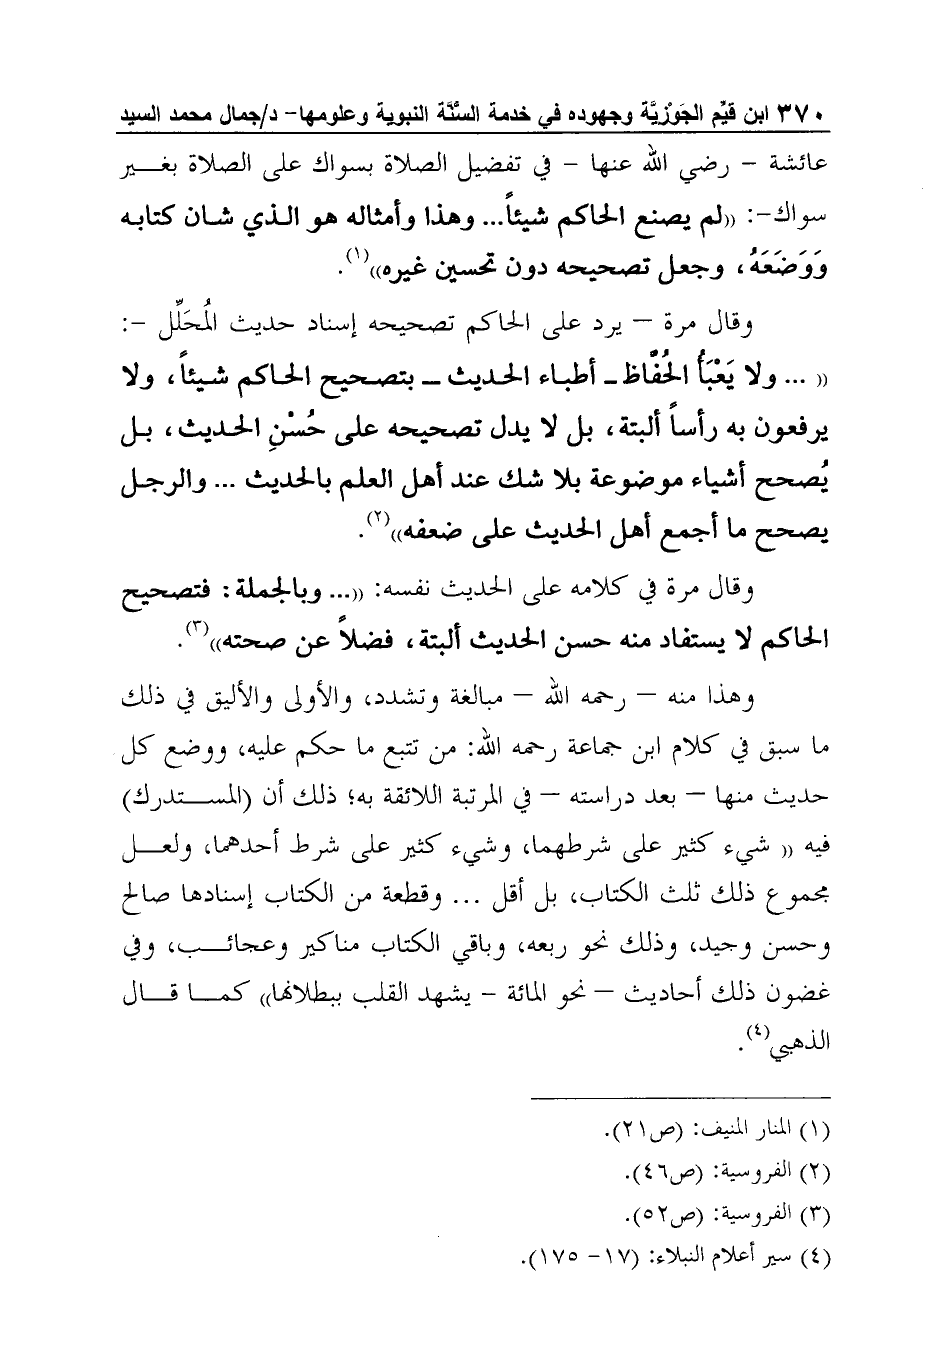 ٣٧٠ ابن قيِّم الجَوْزِيَّة وجهوده في خدمة السُّنَّة النبوية وعلومها- د/جمال محمد السيد
عائشة – رضي الله عنها – في تفضيل الصلاة بسواك على الصلاة بغير
سواك-: ((لم يصنع الحاكم شيئاً... وهذا وأمثاله هو الذي شان كتابه
وَوَضَعَهُ، وجعل تصحيحه دون تحسين غيره))(١).
وقال مرة – يرد على الحاكم تصحيحه إسناد حديث المُحَلِّل –:
(( ... ولا يَعْبَأُ الحُفَّاظ ـ أطباء الحديث ـ بتصحيح الحاكم شيئاً، ولا
يرفعون به رأساً ألبتة، بل لا يدل تصحيحه على حُسْنِ الحديث، بل
يُصحح أشياء موضوعة بلا شك عند أهل العلم بالحديث ... والرجل
يصحح ما أجمع أهل الحديث على ضعفه))(٢).
وقال مرة في كلامه على الحديث نفسه: ((... وبالجملة: فتصحيح
الحاكم لا يستفاد منه حسن الحديث ألبتة، فضلاً عن صحته))(٣).
وهذا منه – رحمه الله – مبالغة وتشدد، والأولى والأليق في ذلك
ما سبق في كلام ابن جماعة رحمه الله: من تتبع ما حكم عليه، ووضع كل
حديث منها – بعد دراسته – في المرتبة اللائقة به؛ ذلك أن (المستدرك)
فيه (( شيء كثير على شرطهما، وشيء كثير على شرط أحدهما، ولعل
مجموع ذلك ثلث الكتاب، بل أقل ... وقطعة من الكتاب إسنادها صالح
وحسن وجيد، وذلك نحو ربعه، وباقي الكتاب مناكير وعجائب، وفي
غضون ذلك أحاديث – نحو المائة – يشهد القلب ببطلانها)) كما قال
الذهبي(٤).
(١) المنار المنيف: (ص٢١).
(٢) الفروسية: (ص٤٦).
(٣) الفروسية: (ص٥٢).
(٤) سير أعلام النبلاء: (١٧- ١٧٥).